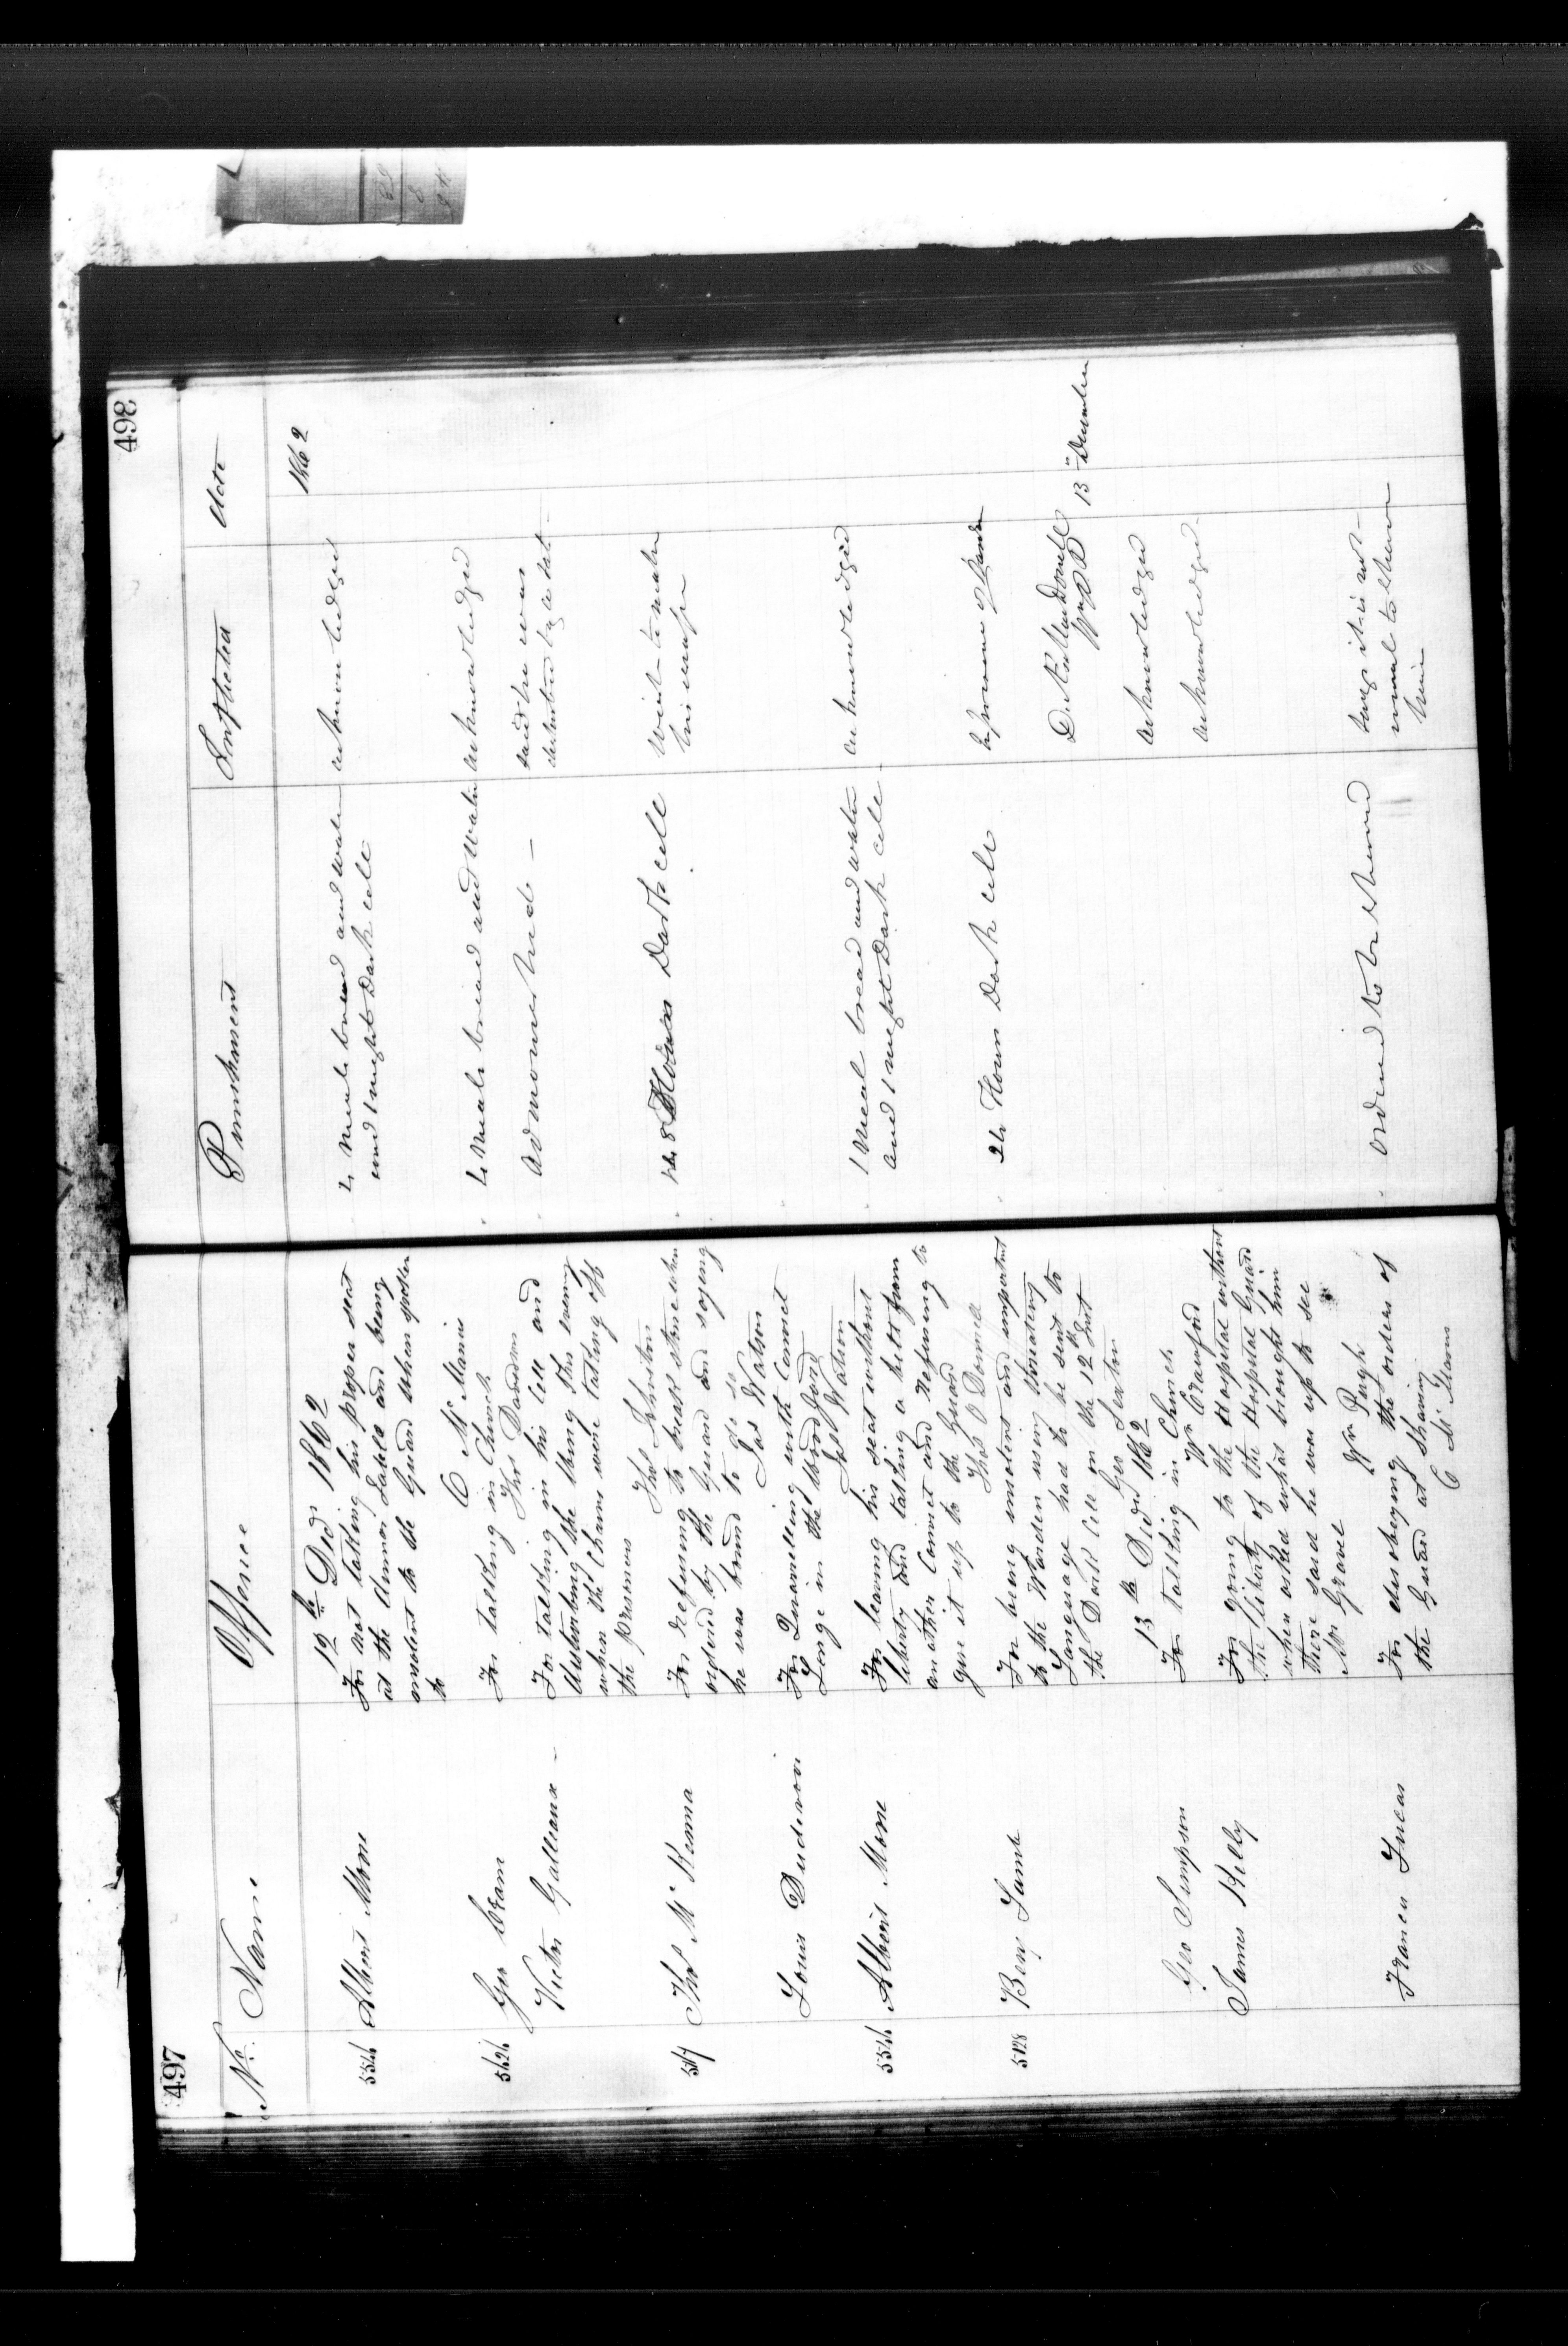 497
No. Name
Offence
12th Decr 1862
5544 Albert Mone
For not taking his proper seat
at the dinner Table and being
insolent to the Guard when spoken
to
C McManus
5426 Geo Cram
For talking in Church
Thos Davidson
Victor Galleaux -
For talking in his cell and
disturbing the wing this evening
when the Chains were taking off
the prisoners
Thos Johnston
Thos McKenna
For refusing to break stone when
ordered by the Guard and saying
he was bound to do so
Jas Watson
Louis Dudevoir
For Quarrelling with Convict
Longe in the Wood Yard
Jas Watson
5544 Albert Mone
For leaving his seat without
liberty and taking a belt from
another Convict and refusing to
give it up to the Guard
Thos O'Donnell
5128 Benj Lamb
For being insolent and impertinent
to the Warden using threatening
Language had to be sent to
the Dark Cell on the 12th Inst
Geo Sexton
13th Decr 1862
Geo Simpson
For talking in Church
Wm Crawford
James Kelly
For going to the Hospital without
the liberty of the Hospital Guard
when asked what brought him
there said he was up to see
Mr Grant
Wm Pugh
Francis Lucas
For disobeying the orders of
the Guard at Shaving
C McManus
498
Punishment
Inflicted
Acts
1862
4 meals bread and water
and 1 night Dark cell
acknowledged
4 Meals bread and Water
acknowledged
Admonished -
said he was
disturbed by a rat
48 Hours Dark cell
went to make
his escape
1 Meal bread and water
and 1 night Dark cell
acknowledged
24 Hours Dark cell
by order of Warden
D. A. Macdonell
Wn PP
13th December
acknowledged
acknowledged
ordered to be shaved
says it is not
usual to shave
him